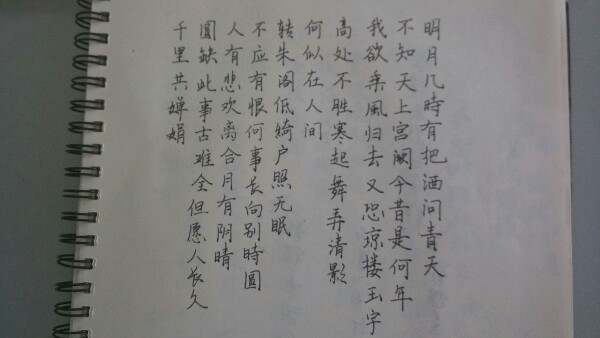 明月几時有把酒问青天
不知天上宫阙今昔是何年
我欲乘風归去又恐琼楼玉宇
高处不胜寒起舞弄清影
何似在人间
转朱阁低绮户照无眠
不应有恨何事长向别時圆
人有悲欢离合月有阴晴
圆缺此事古难全但愿人长久
千里共婵娟